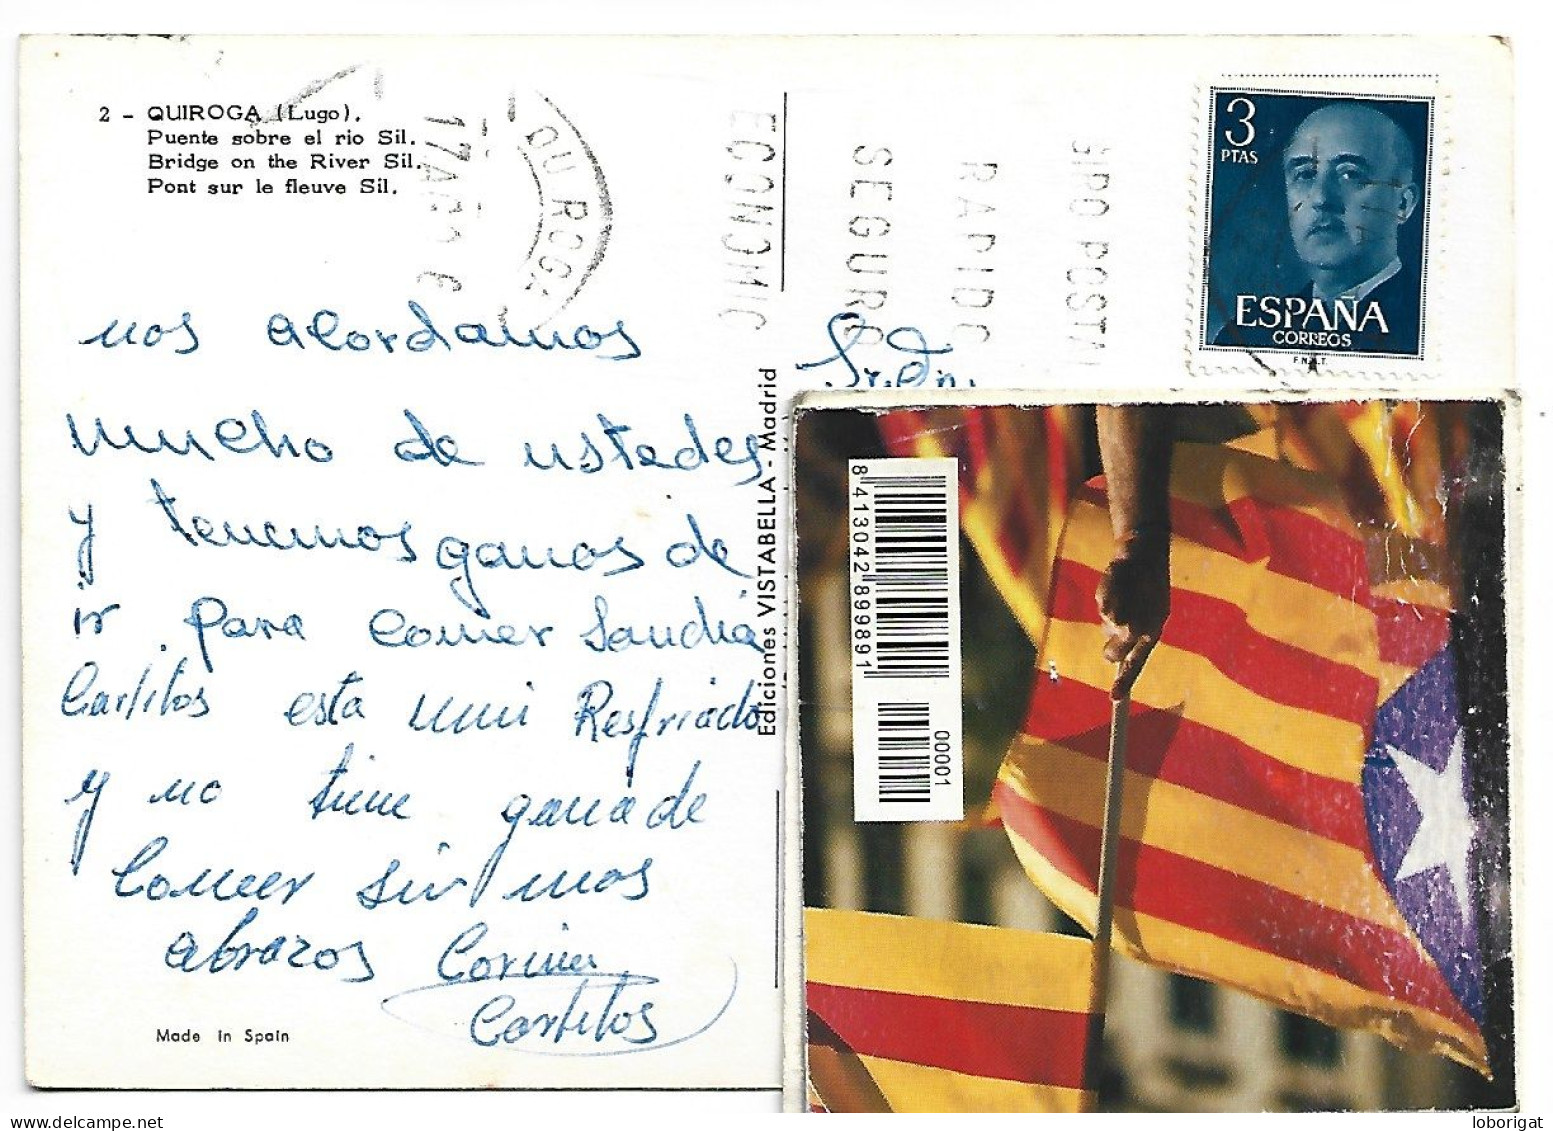 2 - QUIROGA (Lugo).
Puente sobre el rio Sil.
Bridge on the River Sil.
Pont sur le fleuve Sil.
QUIROGA
GIRO POSTAL
RAPIDO
SEGURO
ECONOMIC
3
PTAS
ESPAÑA
CORREOS
F.N.M.T.
nos acordamos
mucho de ustedes
y tenemos ganas de
ir para comer Sandia
Carlitos esta mui Resfriado
y no tiene gana de
Comer sin mas
abrazos Corina
Carlitos
Ediciones VISTABELLA - Madrid
Made in Spain
8 413042 899891
00001
loborigat